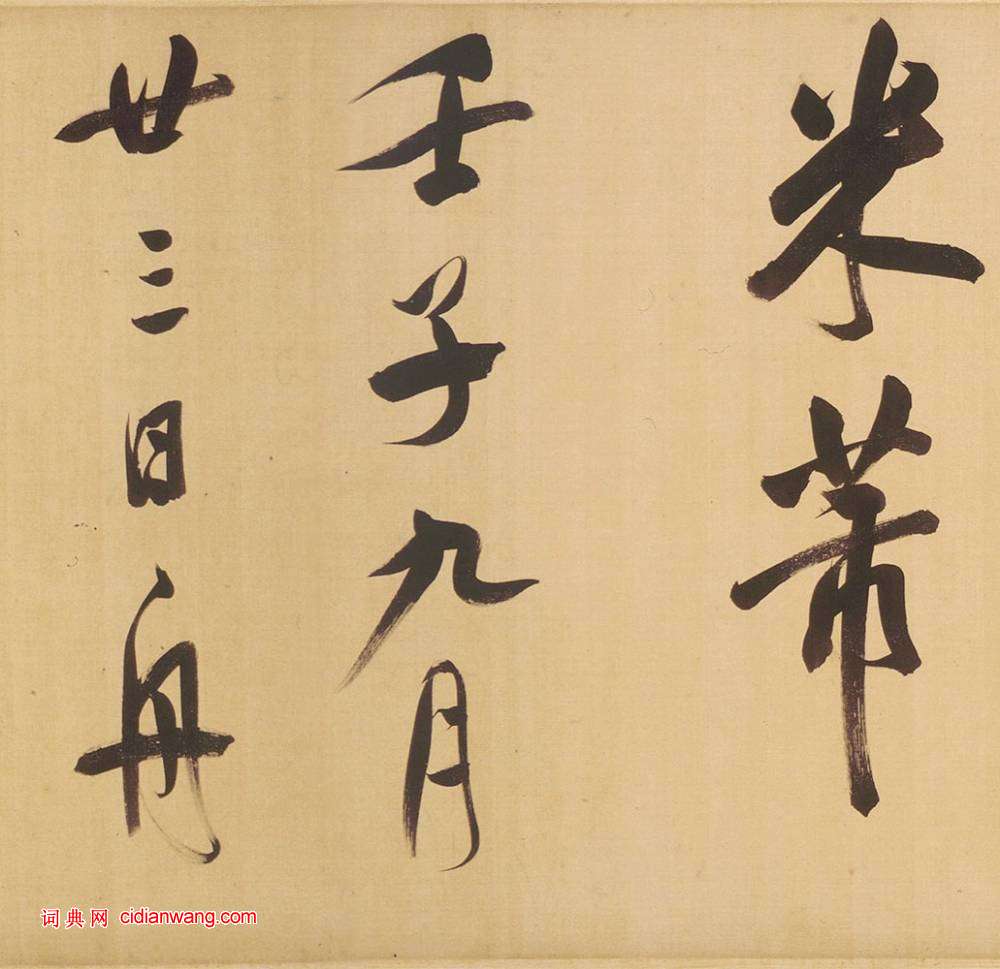 米芾
壬子九月
廿三日舟
词典网 cidianwang.com